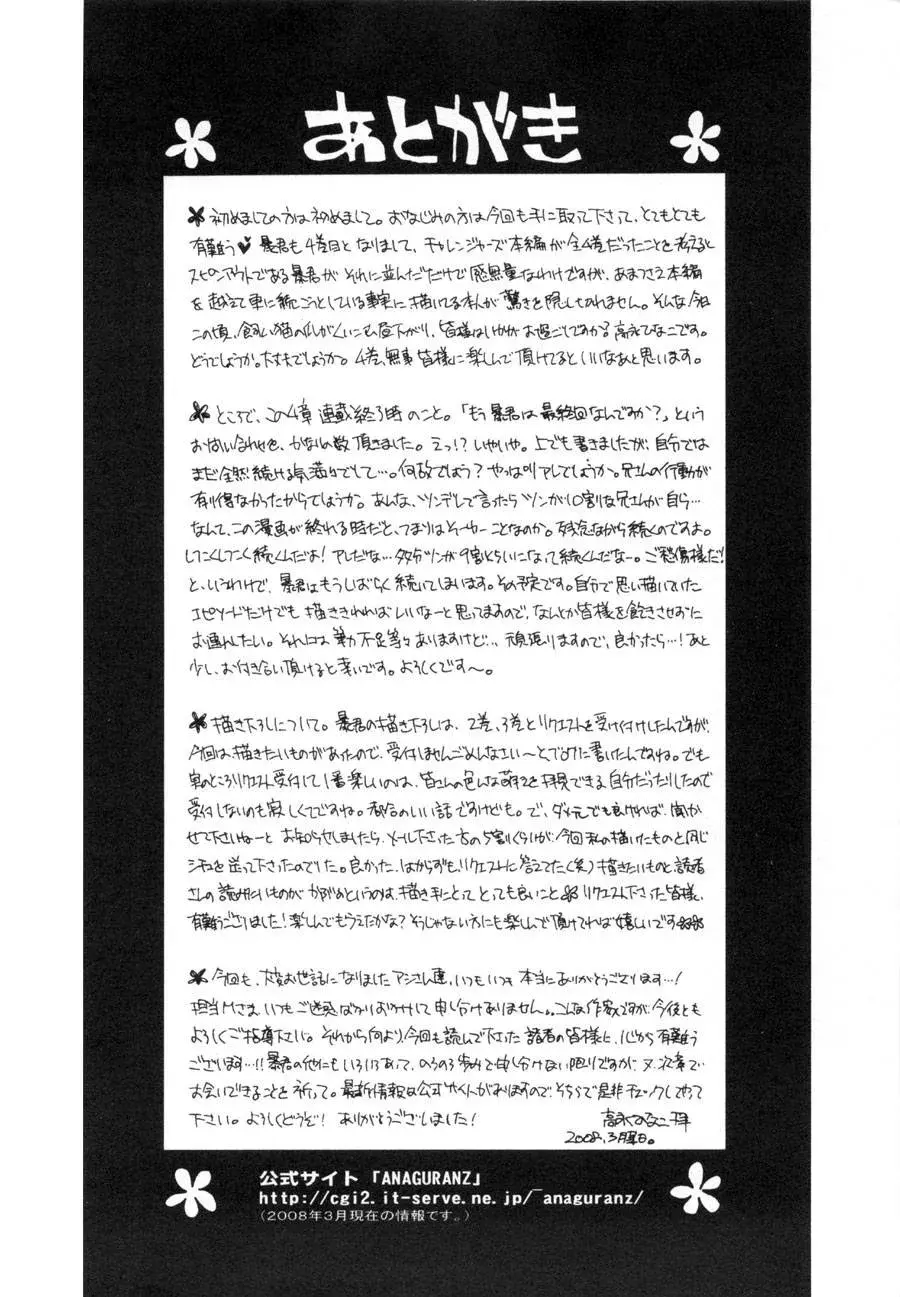 あとがき
初めましての方は初めまして。おなじみの方は今回も手に取って下さって、とてもとても
有難う♥暴君も4巻目となりまして、チャレンジャーズ本編が全4巻だったことを考えると
スピンアウトである暴君が それに並んだだけで 感無量なわけですが、あまつさえ本編
を越えて更に続こうとしている事実に描いてる本人が 驚きを隠しきれません。そんな今日
この頃、飼い猫の 昼下がり、皆様はいかがお過ごしですか?高永ひなこです。
どうでしょうか。大丈夫でしょうか。4巻、無事皆様に楽しんで頂けてるといいなあと思います。
ところで、この4章連載終了時のこと。「もう暴君は最終回なんですか?」という
お問い合わせを、かなりの数頂きました。えっ!?いやいや。上でも書きましたが、自分では
まだ全然続ける気満々でして…。何故でしょう?やっぱりアレでしょうか。兄さんの行動が
有り得なかったからでしょうか。あんな、ツンデレで言ったらツンが10割な兄さんが自ら…
なんて、この漫画が終わる時だと、つまりはそーゆーことなのか。残念ながら続くのですよ。
しつこくしつこく続くんだよ!アレだな…多分ツンが9割くらいになって続くんだなー。ご愁傷様だ!
と、いうわけで、暴君はもうしばらく続いてしまいます。その予定です。自分で思い描いていた
エピソードだけでも 描ききれればいいなーと思ってますので、なんとか皆様を飽きさせずに
お連れしたい。それには筆力不足等々ありますけど…、頑張りますので、良かったら…!あと
少し、お付き合い頂けると幸いです。よろしくです〜。
描き下ろしについて。暴君の描き下ろしは、2巻、3巻とリクエストを受け付けしたんですが、
今回は描きたいものがあったので、受付しませんごめんなさい〜とブログに書いたんですね。でも
実のところリクエスト受付して1番楽しいのは、皆さんの色んな萌えを拝見できる自分だったりしたので
受付しないのも寂しくてですね。都合のいい話ですけども。で、ダメ元でも良ければ、聞か
せて下さいねーと お知らせしましたら、メール下さった方の5割くらいが、今回私の描いたものと同じ
シチュを送って下さったのでした。良かった、はからずも、リクエストに答えてた(笑)描きたいものと、読者
さんの読みたいものが かぶるというのは、描き手にとって とても良いこと リクエスト下さった皆様、
有難うございました!楽しんでもらえたかな?そうじゃない方にも楽しんで頂けてれば嬉しいです
今回も、大変お世話になりましたアシさん達、いつもいつも 本当にありがとうございます…!
担当Mさま、いつもご迷惑ばかりおかけして申し訳ありません。こんな作家ですが、今後とも
よろしくご指導下さい。それから何より、今回も読んで下さった読者の皆様に、心から有難う
ございます…!!暴君の他にもいろいろあって、のろのろ歩みで申し訳ない限りですが、又、次巻で
お会いできることを祈って。最新情報は公式 そちらで是非チェックしてやって
下さい。よろしくどうぞ! ありがとうございました!
高永ひなこ 拝
2008.3月 日。
公式サイト「ANAGURANZ」
http://cgi2.it-serve.ne.jp/~anaguranz/
(2008年3月現在の情報です。)